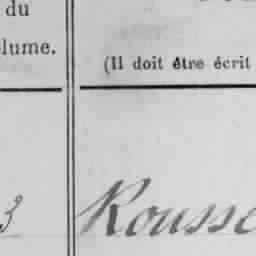 du
lume.
(Il doit être écrit
3
Rousse